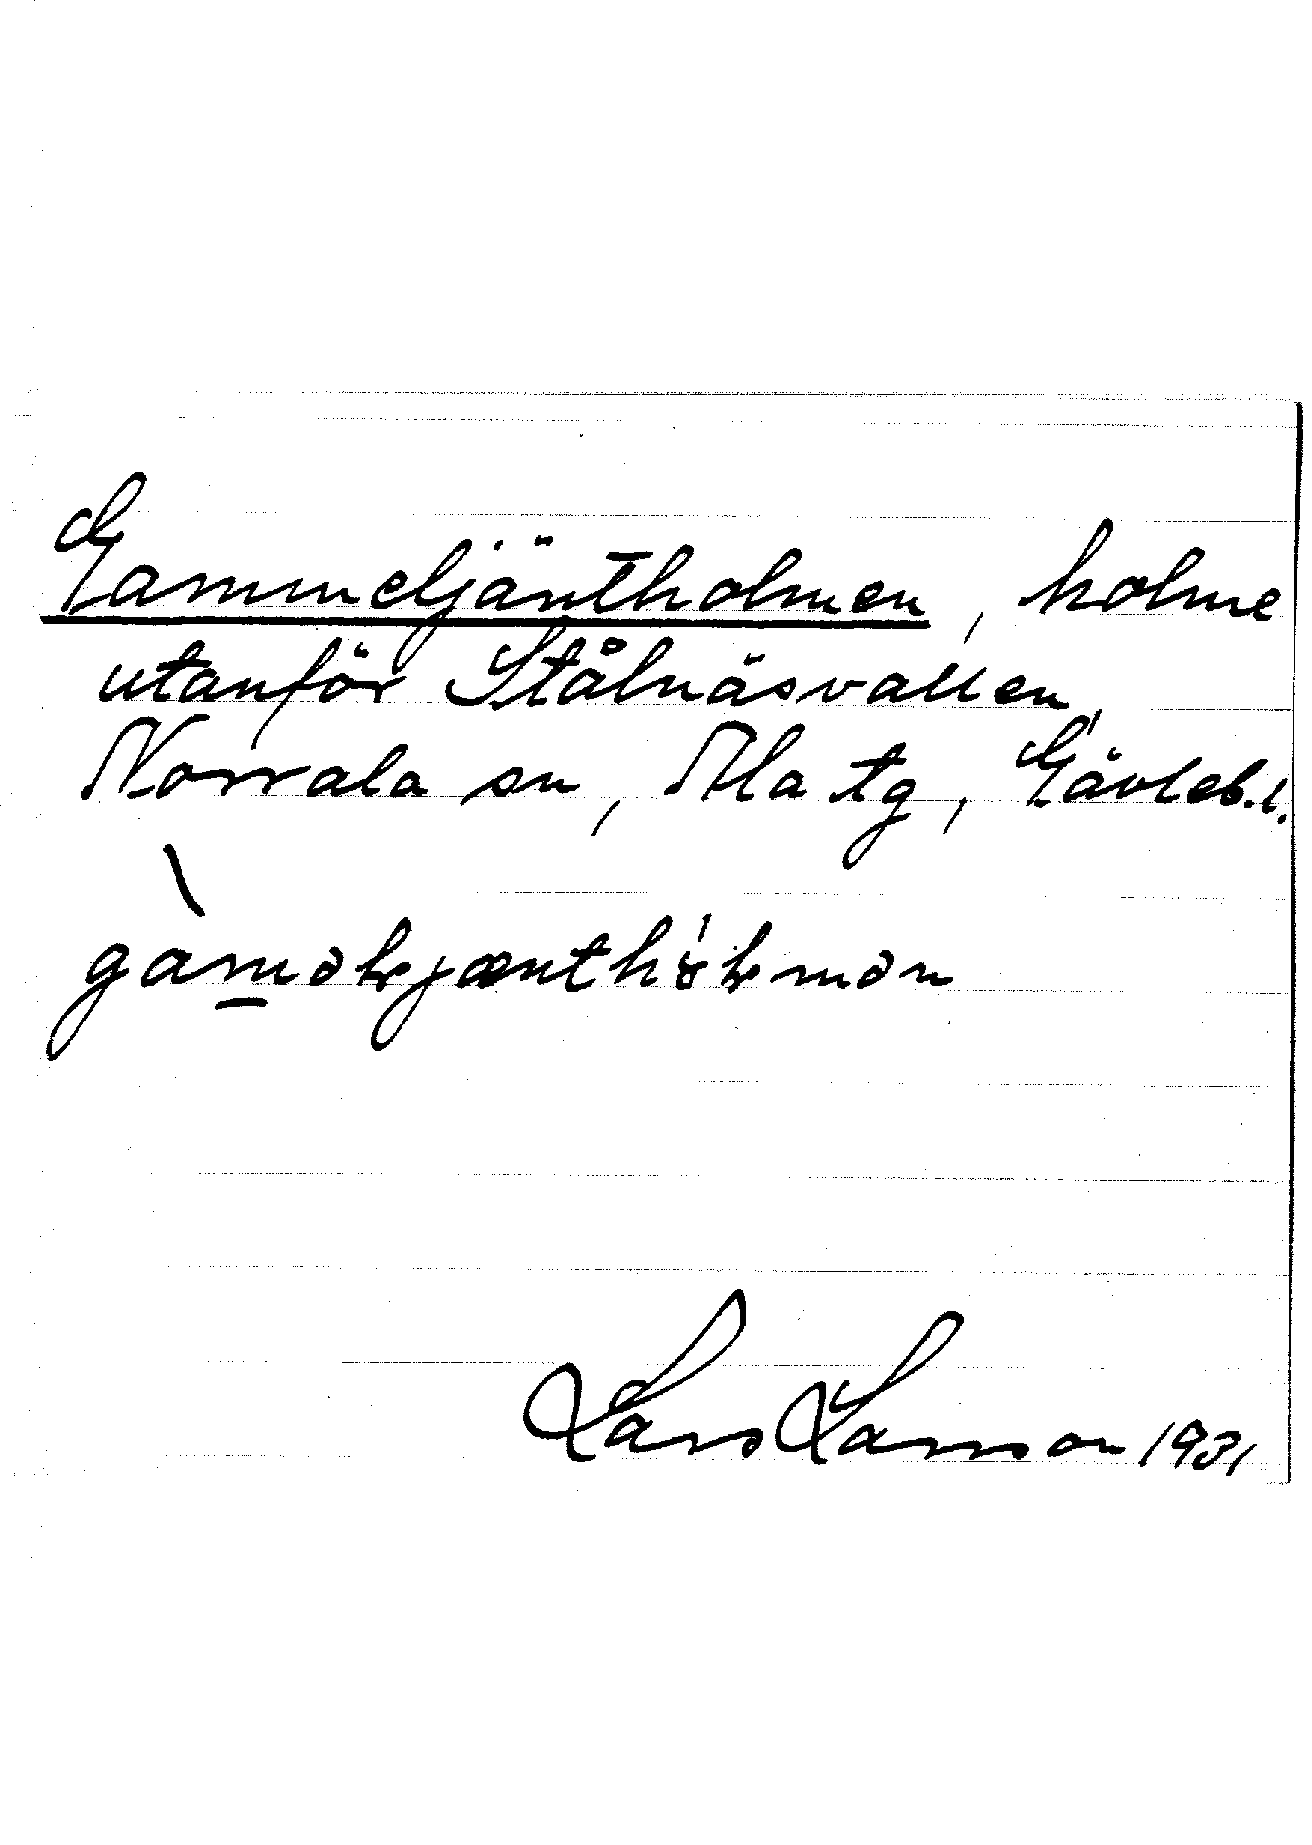 Gammeljäntholmen, holme
utanför Stålnäsvallen,
Norrala sn, Ala tg, Gävleb.l.
gàməɬjænthɤ́ɬmən
Lars Larsson 1931